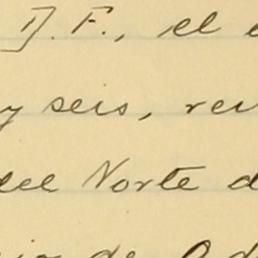 D. F., el
y seis,
del Norte
de